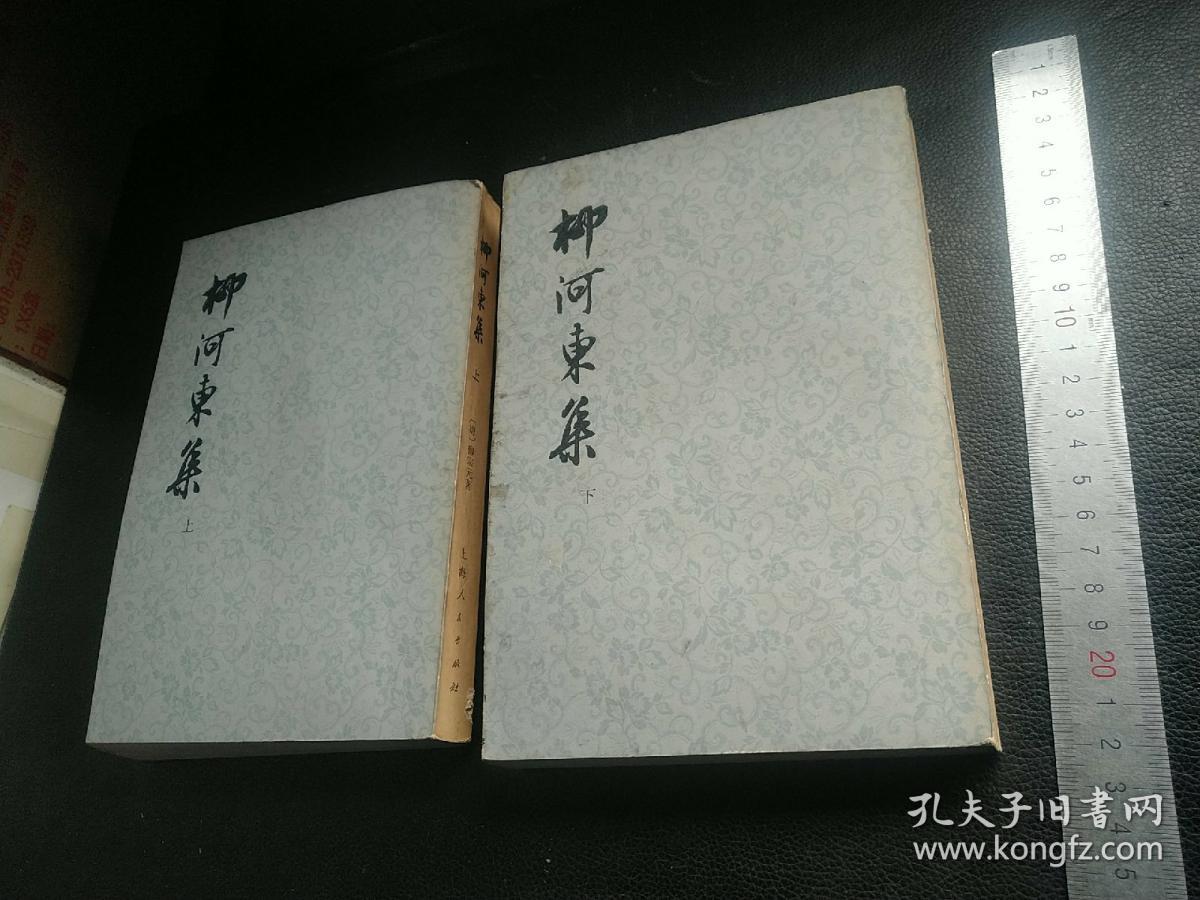 柳河東集
上
柳河東集
上
〔唐〕柳宗元著
上海人民出版社
柳河東集
下
1 2 3 4 5 6 7 8 9 10 1 2 3 4 5 6 7 8 9 20 1 2 3 4 5
孔夫子旧书网
www.kongfz.com